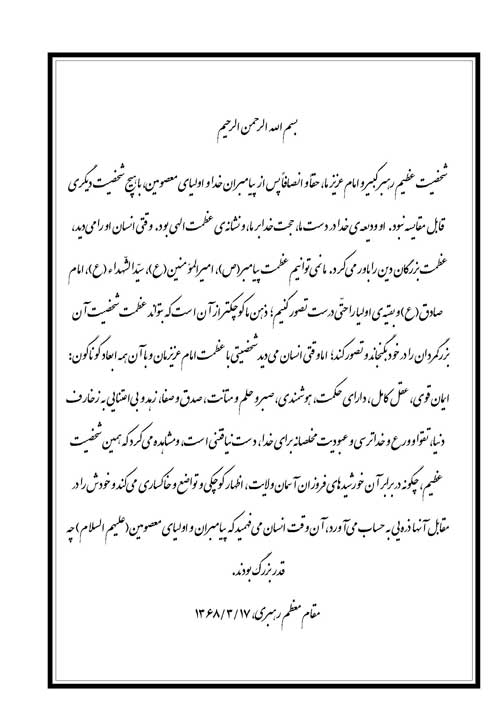 بسم الله الرحمن الرحیم
شخصیت عظیم رهبر کبیر و امام عزیز ما، حقاً و انصافاً پس از پیامبران خدا و اولیای معصومین، با هیچ شخصیت دیگری
قابل مقایسه نبود. او ودیعه‌ی خدا در دست ما، حجت خدا بر ما، و نشانه‌ی عظمت الهی بود. وقتی انسان او را می‌دید،
عظمت بزرگان دین را باور می‌کرد. ما نمی‌توانیم عظمت پیامبر(ص)، امیرالمؤمنین(ع)، سیّدالشّهداء(ع)، امام
صادق(ع) و بقیه‌ی اولیا را حتّی درست تصور کنیم؛ ذهن ما کوچکتر از آن است که بتواند عظمت شخصیت آن
بزرگمردان را در خود بگنجاند و تصور کند؛ اما وقتی انسان می‌دید شخصیتی با عظمت امام عزیزمان و با آن همه ابعاد گوناگون:
ایمان قوی، عقل کامل، دارای حکمت، هوشمندی، صبر و حلم و متانت، صدق و صفا، زهد و بی‌اعتنایی به زخارف
دنیا، تقوا و ورع و خداترسی و عبودیت مخلصانه برای خدا، دست نیافتنی است، و مشاهده می‌کرد که همین شخصیت
عظیم، چگونه در برابر آن خورشیدهای فروزان آسمان ولایت، اظهار کوچکی و تواضع و خاکساری می‌کند و خودش را در
مقابل آنها ذره‌یی به حساب می‌آورد، آن وقت انسان می‌فهمید که پیامبران و اولیای معصومین(علیهم السلام) چه
قدر بزرگ بودند.
مقام معظم رهبری، ۱۳۶۸/۳/۱۷